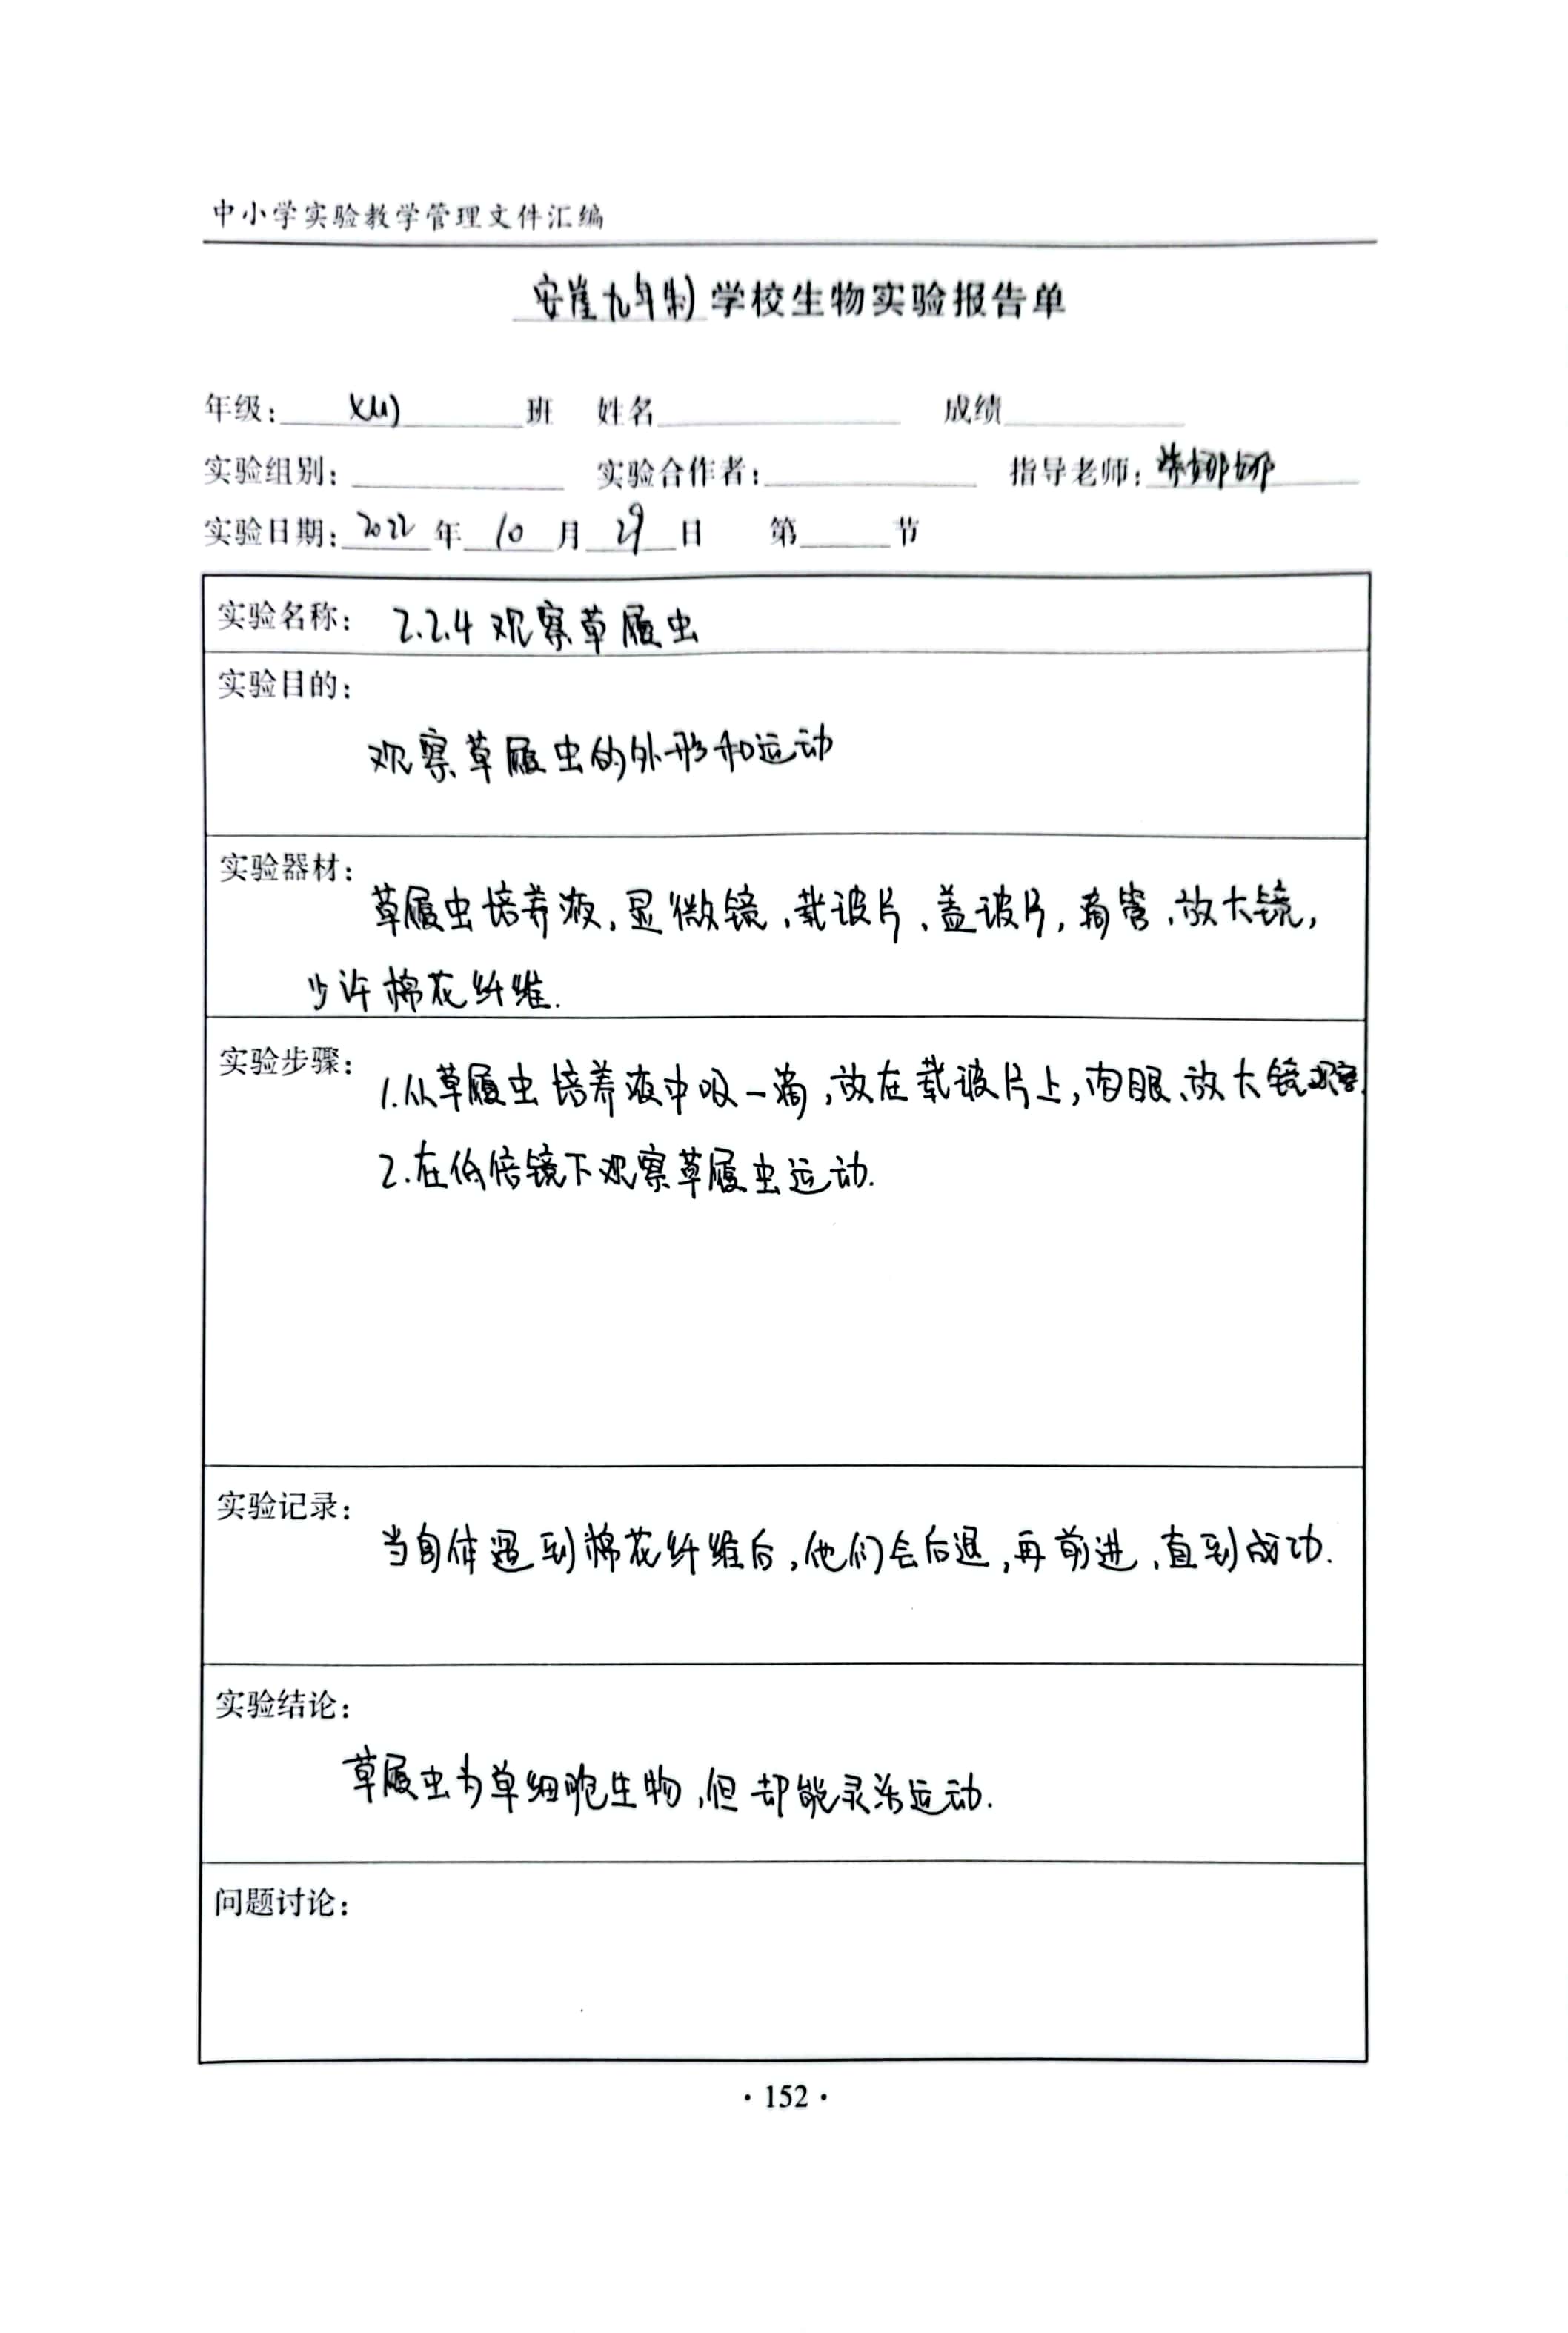 中小学实验教学管理文件汇编
安崖九年制学校生物实验报告单
年级: 班 姓名 成绩
实验组别: 实验合作者: 指导老师: 娜娜
实验日期: 2022 年 10 月 29 日 第 节
实验名称: 2.2.4 观察草履虫
实验目的:
观察草履虫的外形和运动
实验器材:
草履虫培养液,显微镜,载玻片,盖玻片,滴管,放大镜,
少许棉花纤维.
实验步骤:
1.从草履虫培养液中吸一滴,放在载玻片上,肉眼、放大镜观察.
2.在低倍镜下观察草履虫运动.
实验记录:
当身体遇到棉花纤维后,他们会后退,再前进,直到成功.
实验结论:
草履虫为单细胞生物,但却能灵活运动.
问题讨论:
· 152 ·